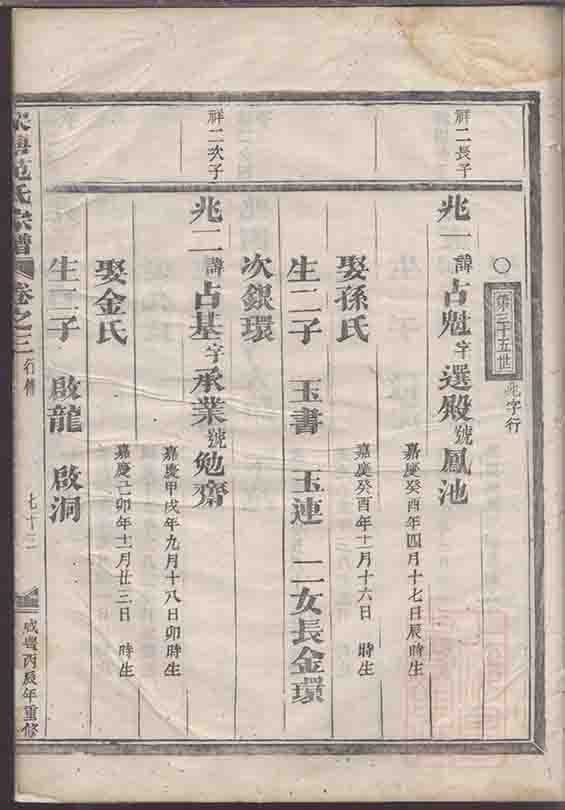 ○第三十五世 兆字行
祥二長子
兆一諱占魁字選殿號鳳池
嘉慶癸酉年四月十七日辰時生
娶孫氏
嘉慶癸酉年十一月十六日 時生
生二子 玉書 玉連 二女長金環
次銀環
祥二次子
兆二諱占基字承業號勉齋
嘉慶甲戌年九月十八日卯時生
娶金氏
嘉慶己卯年十一月廿三日 時生
生二子 啟龍 啟洞
范氏宗譜 卷之三 行傳 七十三 咸豐丙辰年重修